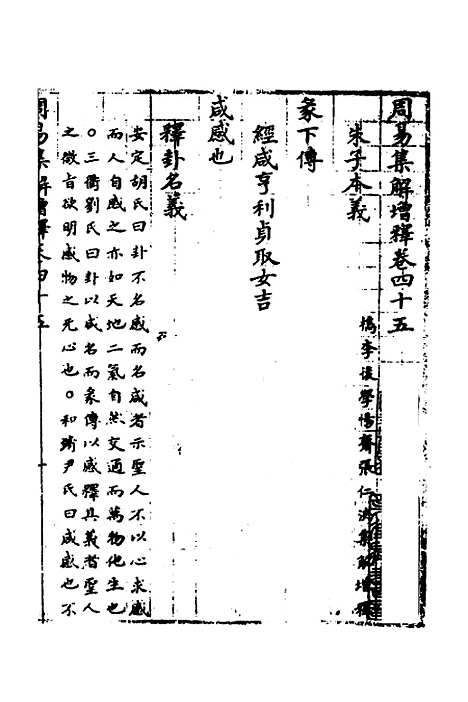 周易集解增釋卷四十五
檇李後學惕齋張仁浹集解增釋
朱子本義
彖下傳
經咸亨利貞取女吉
咸感也
釋卦名義
安定胡氏曰卦不名感而名咸者示聖人不以心求感
而人自感之亦如天地二氣自然交通而萬物化生也
○三衢劉氏曰卦以咸名而彖傳以感釋其義者聖人
之微旨欲明感物之无心也○和靖尹氏曰咸感也不
周易集解增釋卷四十五